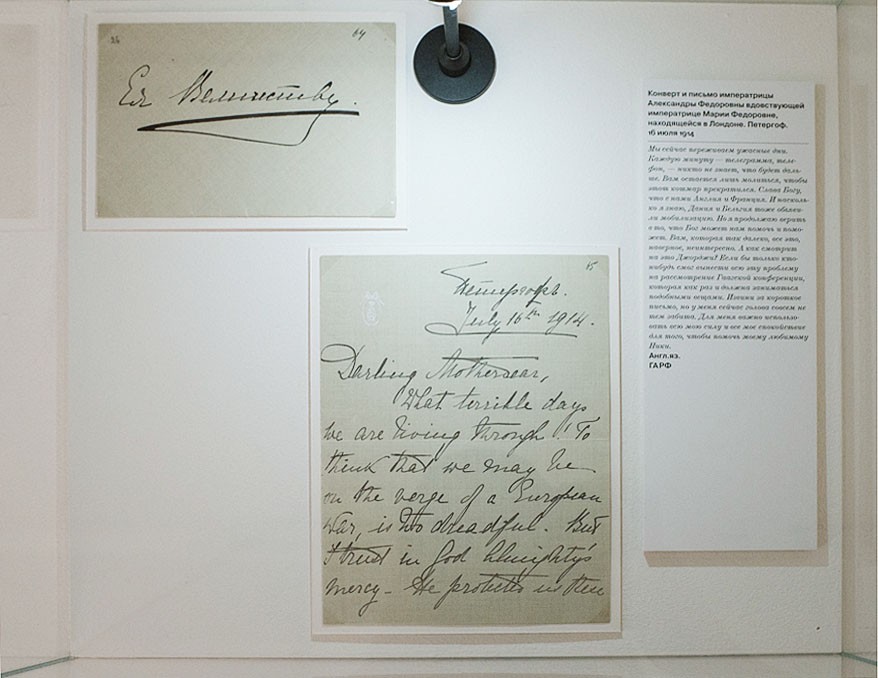 26
64
Ея Величеству.
Конверт и письмо императрицы
Александры Федоровны вдовствующей
императрице Марии Федоровне,
находящейся в Лондоне. Петергоф.
16 июля 1914
Мы сейчас переживаем ужасные дни.
Каждую минуту — телеграмма, теле-
фон, — никто не знает, что будет даль-
ше. Вам остается лишь молиться, чтобы
этот кошмар прекратился. Слава Богу,
что с нами Англия и Франция. И насколь-
ко я знаю, Дания и Бельгия тоже объяви-
ли мобилизацию. Но я продолжаю верить
в то, что Бог может нам помочь и помо-
жет. Вам, которая так далеко, все это,
наверное, неинтересно. А как смотрит
на это Джорджи? Если бы только кто-
нибудь смог вынести всю эту проблему
на рассмотрение Гаагской конференции,
которая как раз и должна заниматься
подобными вещами. Извини за короткое
письмо, но у меня сейчас голова совсем не
тем забита. Для меня важно использо-
вать всю мою силу и все мое спокойствие
для того, чтобы помочь моему любимому
Ники.
Англ. яз.
ГАРФ
Петергофъ.
July 16th 1914.
Darling Motherdear,
What terrible days
we are living through! To
think that we may be
on the verge of a European
war, is too dreadful. But
I trust in God Almighty's
mercy - He protected us then